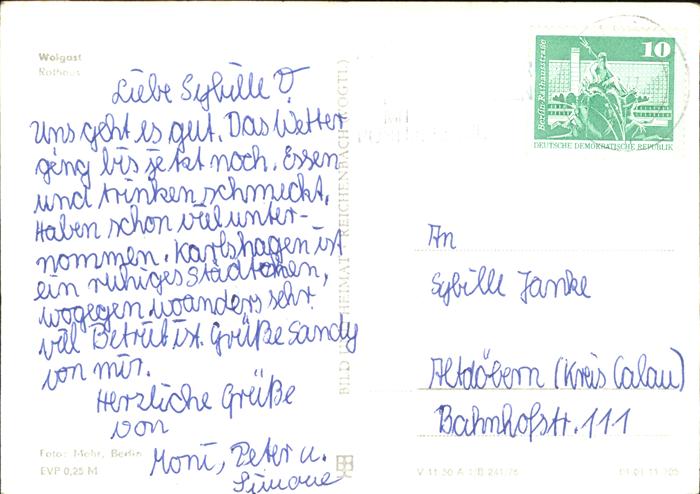 Wolgast
Rathaus
Liebe Sybille!
Uns geht es gut. Das Wetter
ging bis jetzt noch. Essen
und trinken schmeckt.
Haben schon viel unter-
nommen. Karlshagen ist
ein ruhiges Städtchen,
wogegen woanders sehr
viel Betrieb ist. Grüße Sandy
von mir.
Herzliche Grüße
von
Moni, Peter u.
Simone
Foto: Mohr, Berlin
EVP 0,25 M
BILD UND HEIMAT REICHENBACH (VOGTL)
10
Berlin-Rathausstraße
DEUTSCHE DEMOKRATISCHE REPUBLIK
An
Sybille Janke
Altdöbern (Kreis Calau)
Bahnhofstr. 111